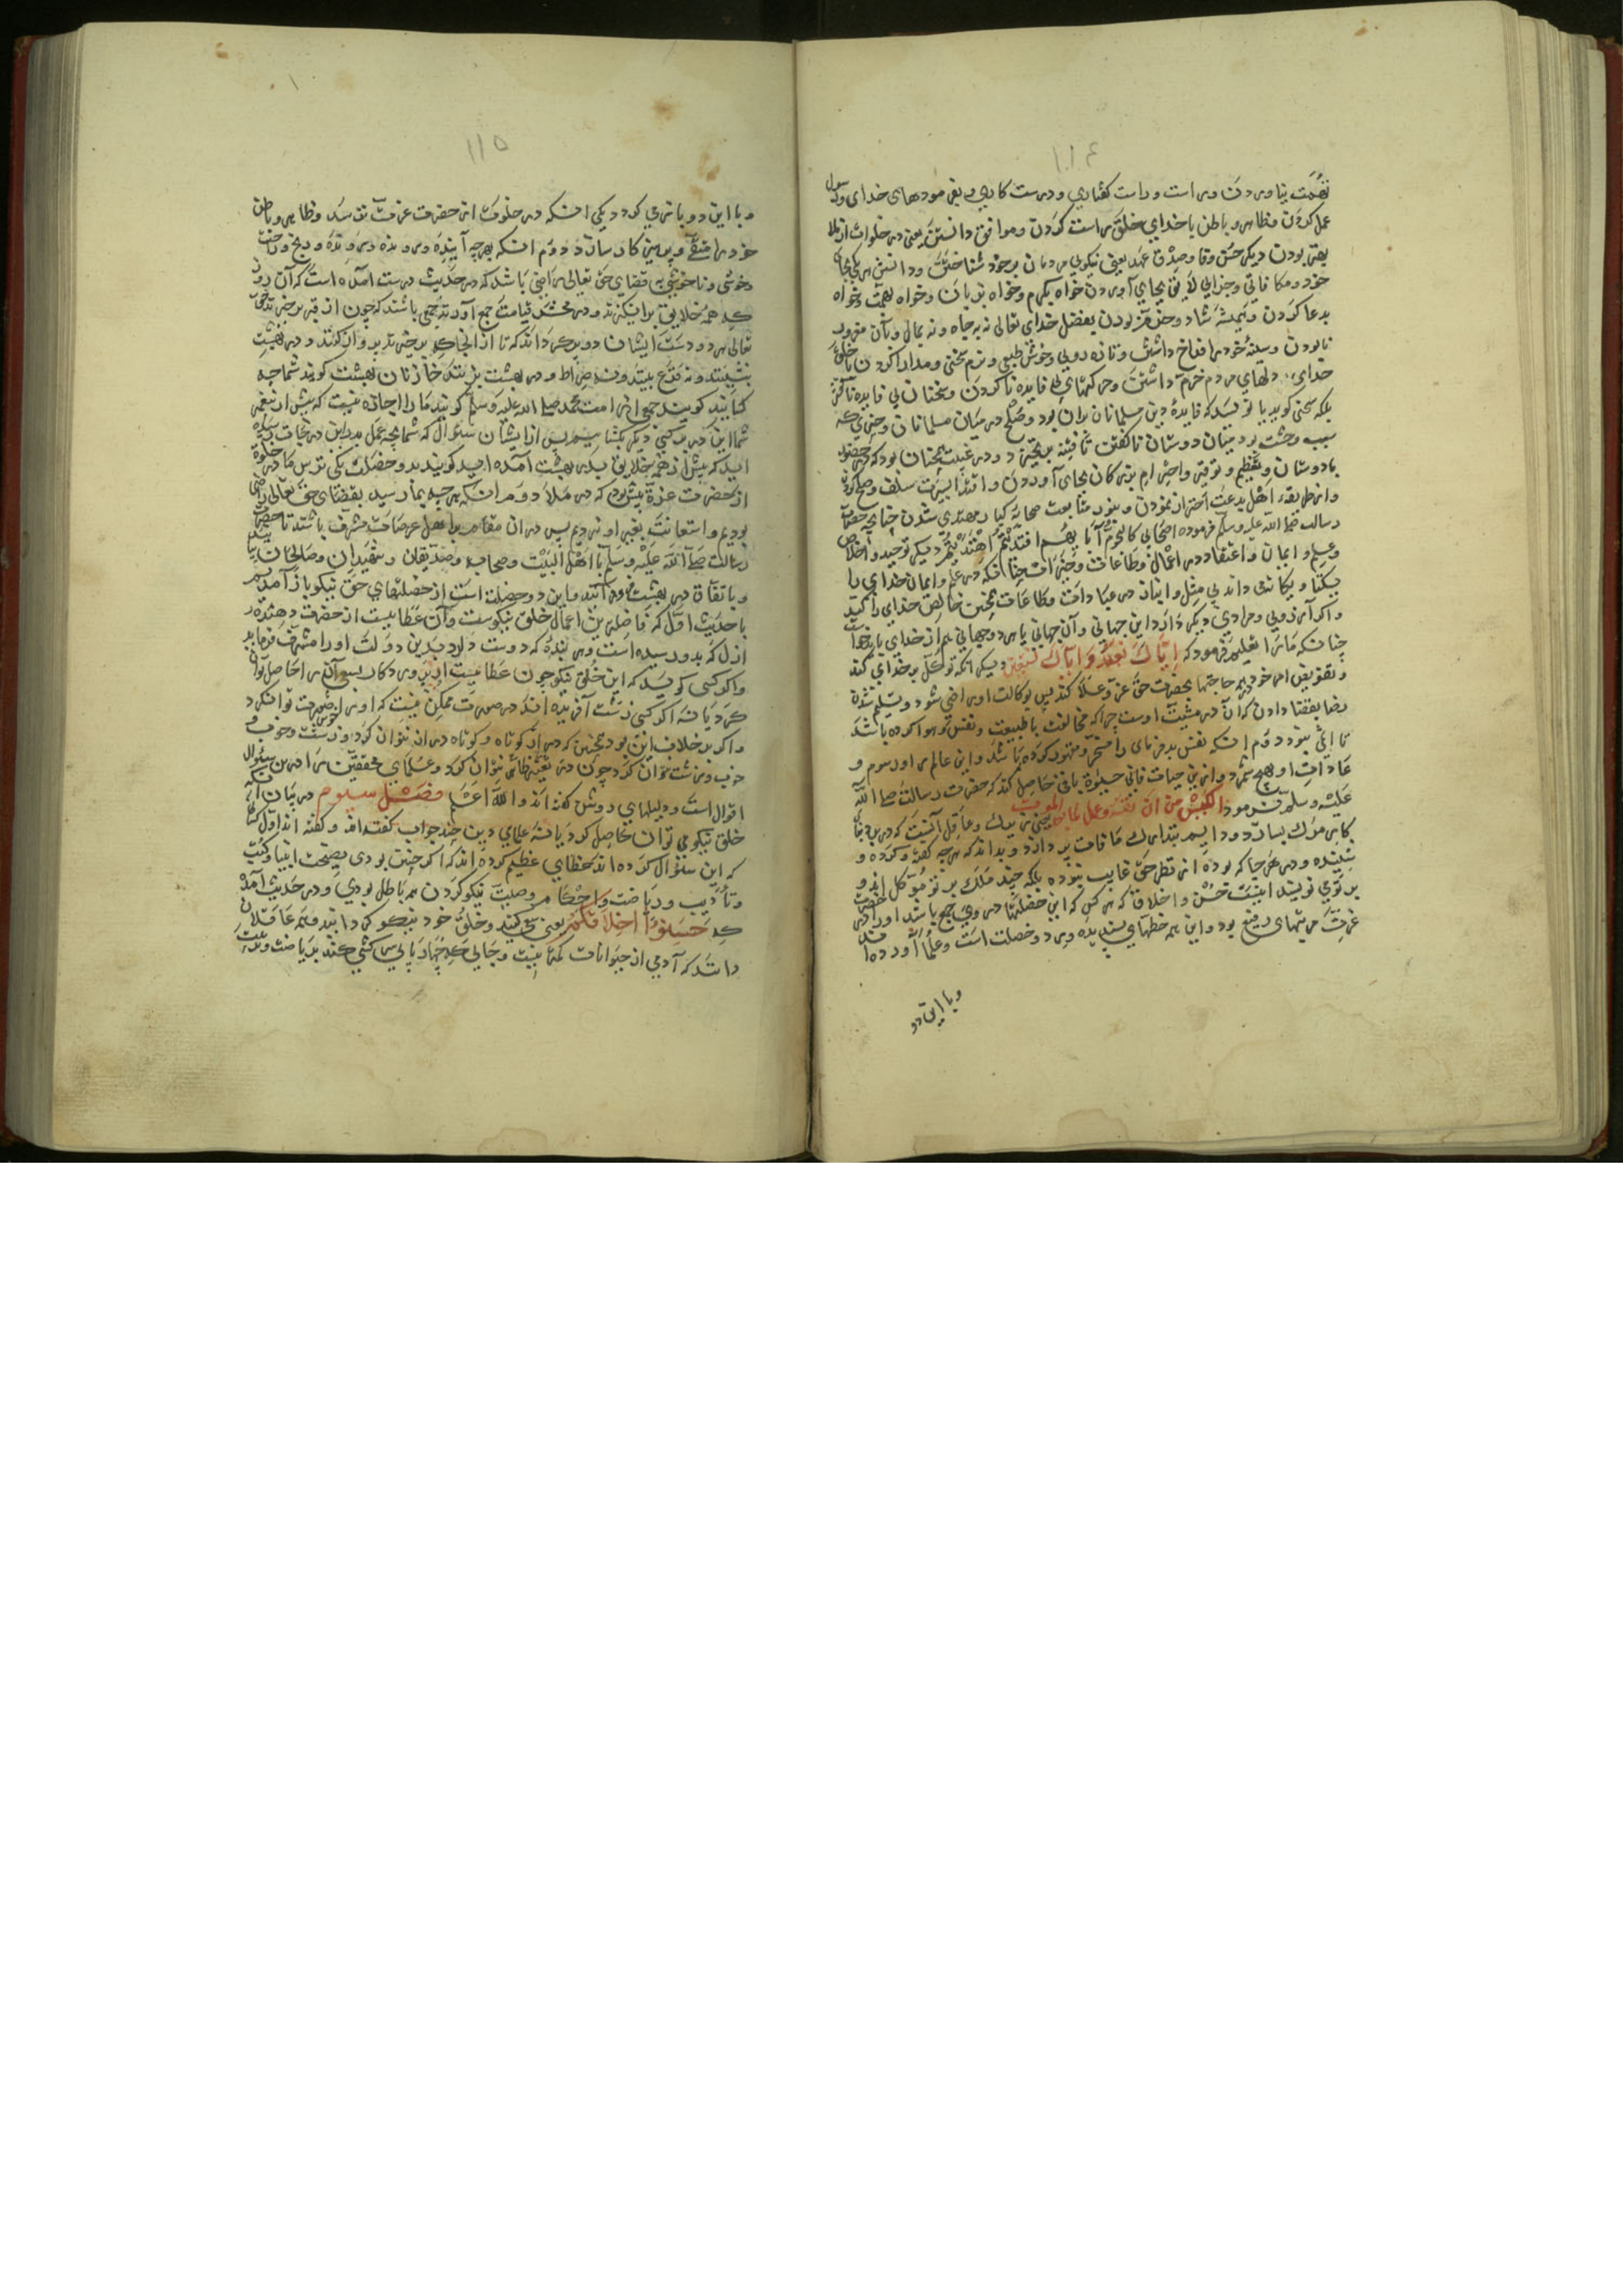 ۱۱۴
نعمت نیاوردن و راست و راست کفتاری و درست کاری و بفرمودهای خدای و رسول
عمل کردن و ظاهر و باطن با خدای و خلق راست کردن و موافق دانستن یعنی در خلوات از ملا
بهتر بودن دیکر حسن وفا و صدق عهد یعنی نیکویی مردمان بر خود شناختن و دانستن هر یکی بجای
خود و مکافاتی و جزایی لایق بجای آوردن خواه بکرم و خواه بزبان و خواه بهمت و خواه
بدعا کردن و همیشه شاد و خوش بودن بفضل خدای تعالی نه بجاه و نه بمال و بآن مغرور
نابودن و سینهٔ خود را فراخ داشتن و تازه رویی و خوش طبعی و نرم سخنی و مدارا کردن با خلق
خدای دلهای مردم خرم داشتن و حرکتهای بی فایده ناکردن و سخنان بی فایده ناگفتن
بلکه سخنی کوید یا نویسد که فایدهٔ دین مسلمانان بران بود و صلح در میان مسلمانان و چیزی که
سبب وحشت بود میان دوستان ناکفتن تا فتنه برنخیزد و در غیبت همچنان بود که در حضور
با دوستان و تعظیم و توقیر و احترام بزرکان بجای آوردن و اقتدا بسیرت سلف صالح کردن
و از طریقهٔ اهل بدعت احتراز نمودن و بنور متابعت صحابه کبار مهتدی شدن چنانچه حضرت
رسالت صلی الله علیه وسلم فرموده اصحابی کالنجوم بایهم اقتدیتم اهتدیتم دیکر توحید و اخلاص
و علم و ایمان و اعتقاد در اعمال و طاعات و خیرات چنانکه در علم و ایمان خدای را
یکتا و یکانه داند بی مثل و انباز در عبادات و طاعات همچنین خالص خدای را کند
و اکر آرزویی و مرادی دیکر دارد این جهانی و آن جهانی یا هر دو جهانی هم از خدای باید خواست
چنانکه ما را تعلیم فرمود که ایاک نعبد و ایاک نستعین دیکر انکه توکل بر خدای کند
و تفویض امر خود در همه حاجتها بحضرت حق عز و علا کند پس بوکالت او راضی شود و تسلیم شدن
رضا بقضا دادن که آن در مشیت اوست چرا که مخالفت با طبیعت و نفس و هوا کرده باشد
تا این بنود دوم انکه نفس بد فرمای را مسخر و مقهور کرده باشد و این عالم را و رسوم و
عادات او هیچ شمرد و ازین حیات فانی حیوة باقی حاصل کند که حضرت رسالت صلی الله
علیه وسلم فرمود الکیس من دان نفسه و عمل لما بعد الموت یعنی زیرک و عاقل آنست که در دنیا
کار مرک بسازد و دایم بتدارک مافات پردازد و بداند که هر چه کفت و کرده و
بیننده و در هر جا که بوده از نظر حق غایب نبوده بلکه چند ملک بر تو موکل اند و
بر توی نویسند اینست حسن و اخلاق که هر کس که این خصلتها در وی جمع باشد او را در حضرت
عزت مرتبهای رفیع بود و این همه خصلتهای پسندیده در دو خصلت است و علما آورده اند
و با این دو
۱۱۵
و با این دو باز می کردد یکی انکه در خلوت از حضرت عزت بترسد و ظاهر و باطن
خود را متقی و پرهیزکار سازد دوم انکه بهر چه آینده و رونده و رنج و راحت
و خوشی و ناخوشی بقضای حق تعالی راضی باشد که در حدیث درست آمده است که آن روز
که همه خلایق برانکیزند و در محشر قیامت جمع آورند جمعی باشند که چون از قبر برخیزند حق
تعالی هر دو دست ایشان دو پر کرداند که تا از انجا که برخیزند پرواز کنند و در بهشت
بنشینند و نه قدح بینند و نه صراط و در بهشت بزینند خازنان بهشت کویند شما چه
کسانید کویند جمعی از امت محمد صلی الله علیه وسلم کویند ما را اجازه نیست که پیش از پیغمبر
شما این در بر کسی دیکر بکشاییم پس از ایشان سؤال که شما بچه عمل بدین درجات رسیده
اید که پیش از همه خلایق بدر بهشت آمده اید کویند بدو خصلت یکی ترس ما در خلوة
از حضرت عزة بیش بود که در ملا دوم انکه هر چه بما رسید بقضای حق تعالی راضی
بودیم و استعانت بغیر او نبردیم پس در ان مقام بر اهل عرصات مشرف باشند تا حضرت
رسالت صلی الله علیه وسلم با اهل البیت و صحابه و صدیقان و شهیدان و صالحان بیایند
و باتفاق در بهشت در آیند و این دو خصلت است از خصلتهای حق نیکو باز آمدیم
با حدیث اول که فاضلترین اعمال خلق نیکوست و آن عطاییست از حضرت دهندهٔ
ازل که بدو رسیده است و هر بندهٔ که دوست دارد بدین دولت او را مشرف فرماید
و اکر کسی کوید که این خلق نیکو چون عطاییست ازلی و در دکان بسعی آن را حاصل توان
کرد یا نه اکر کسی زشت آفریده اند در صورت ممکن نیست که او را خوش صورت توان کرد
و اکر بر خلاف این بود همچنین که دراز کوتاه و کوتاه دراز نتوان کرد و زشت و خوب و
خوب و زشت نتوان کرد چون در تغییر خلق نتوان کرد و علمای محققین را درین سؤال
اقوال است و دلیلهای روشن کفته اند والله اعلم فصل سیوم در بیان آنکه
خلق نیکو می توان حاصل کرد یا نه علمای دین چند جواب کفته اند و کفته اند اول کسانی
که این سؤال کرده اند خطای عظیم کرده اند که اکر چنین بودی نصیحت انبیا و کتب
و تأدیب و ریاضت و احکام و وصیت نیکو کردن هم باطل بودی و در حدیث آمده
که حسنوا اخلاقکم یعنی سعی کنید و خلق خود نیکو کردانید و همه عاقلان
دانند که آدمی از حیوانات کمتر نیست و جایی که چهارپایی سرکشی کند بریاضت و تربیت